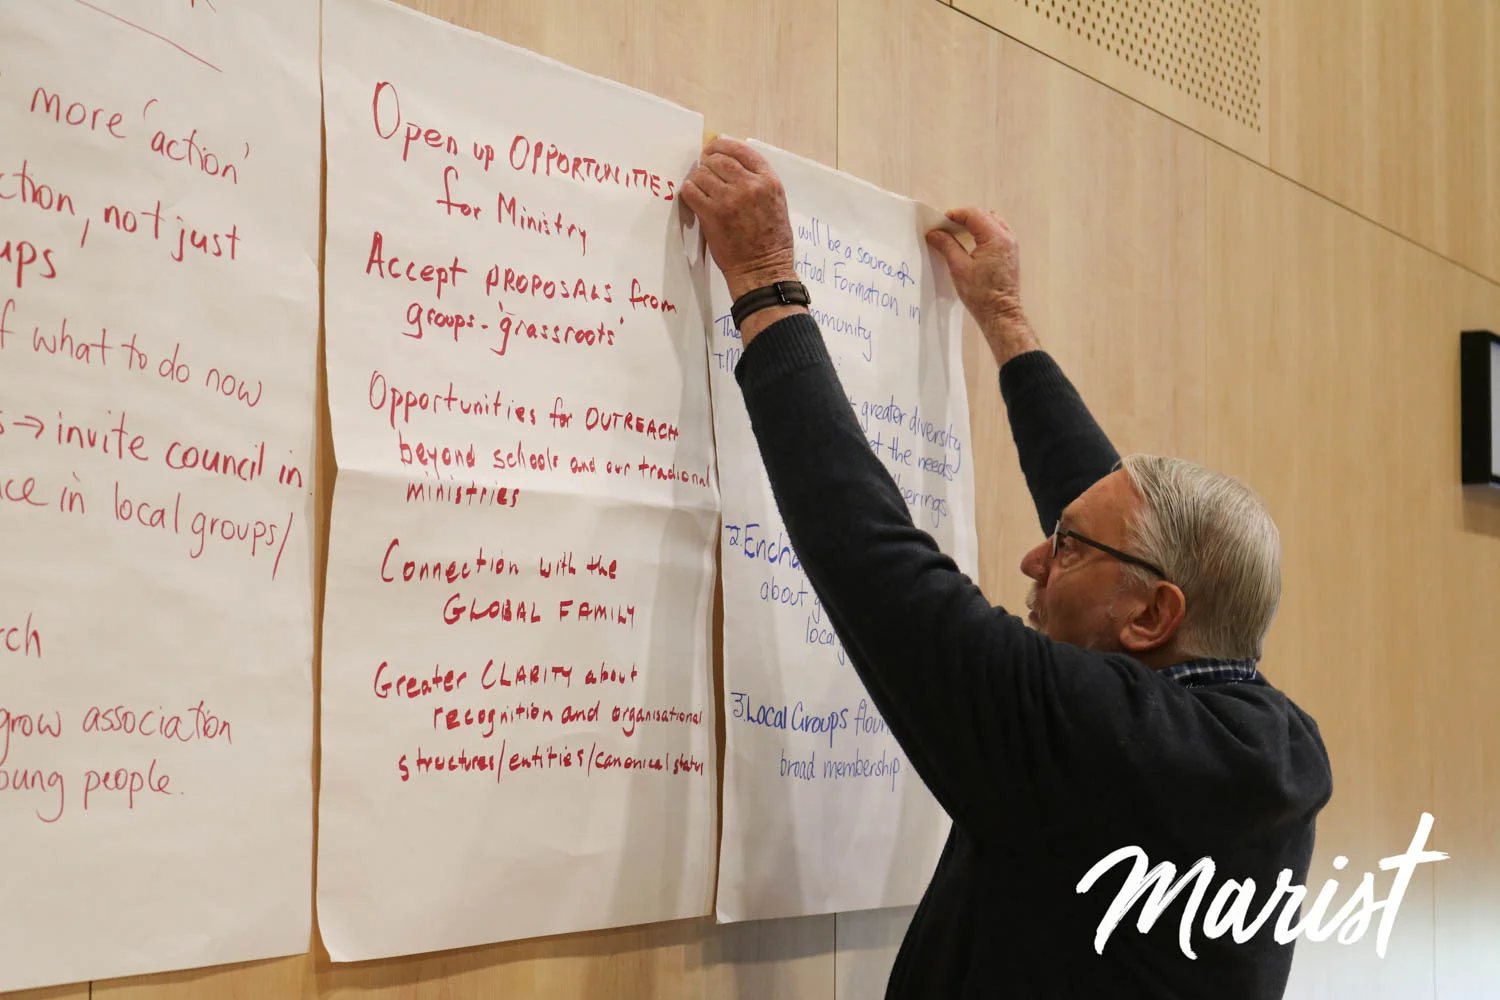 more 'action'
, not just
what to do now
→ invite council in
in local groups/
grow association
people.
Open up OPPORTUNITIES
for Ministry
Accept PROPOSALS from
groups - 'grassroots'
Opportunities for OUTREACH
beyond schools and our tradional
ministries
Connection with the
GLOBAL FAMILY
Greater CLARITY about
recognition and organisational
structures/entities/canonical status
will be a source of
Formation in
greater diversity
the needs
2.
about
local
3. Local Groups
broad membership
Marist